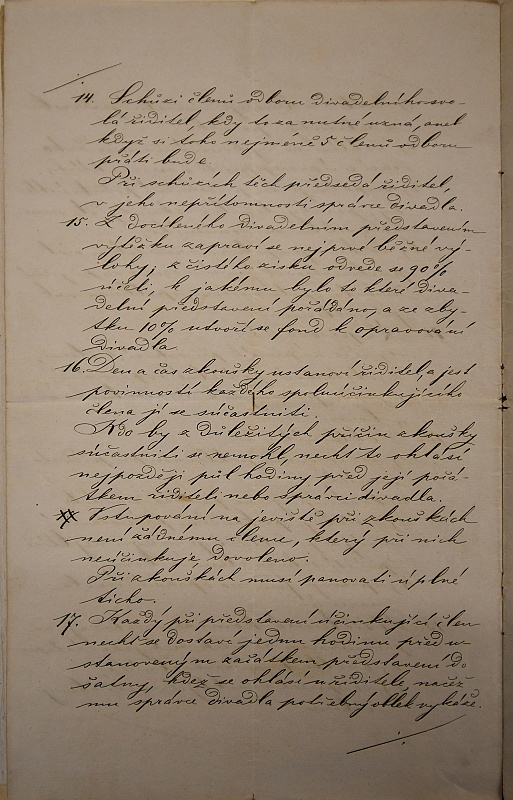 14. Schůzi členů odboru divadelního svo-
lá řiditel, kdy to za nutné uzná, aneb
když si toho nejméně 5 členů odboru
přáti bude.
Při schůzích těch předsedá řiditel,
v jeho nepřítomnosti správce divadla.
15. Z docíleného divadelním představením
výtěžku zapraví se nejprvé běžné vý-
lohy; z čistého zisku odvede se 90%
účeli, k jakému bylo to které diva-
delní představení pořádáno, a ze zby-
tku 10% utvoří se fond k opravování
divadla.
16. Den a čas zkoušky ustanoví řiditel a jest
povinností každého spoluúčinkujícího
člena jí se súčastniti.
Kdo by z důležitých příčin zkoušky
súčastniti se nemohl, nechť to ohlásí
nejpozději půl hodiny před její počá-
tkem řiditeli nebo správci divadla.
# Vstupování na jeviště při zkouškách
není žádnému členu, který při nich
neúčinkuje dovoleno.
Při zkouškách musí panovati úplné
ticho.
17. Každý při představení účinkující člen
nechť se dostaví jednu hodinu před u-
stanoveným začátkem představení do
šatny, kdež se ohlásí u řiditele, načež
mu správce divadla potřebný oblek vykáže.